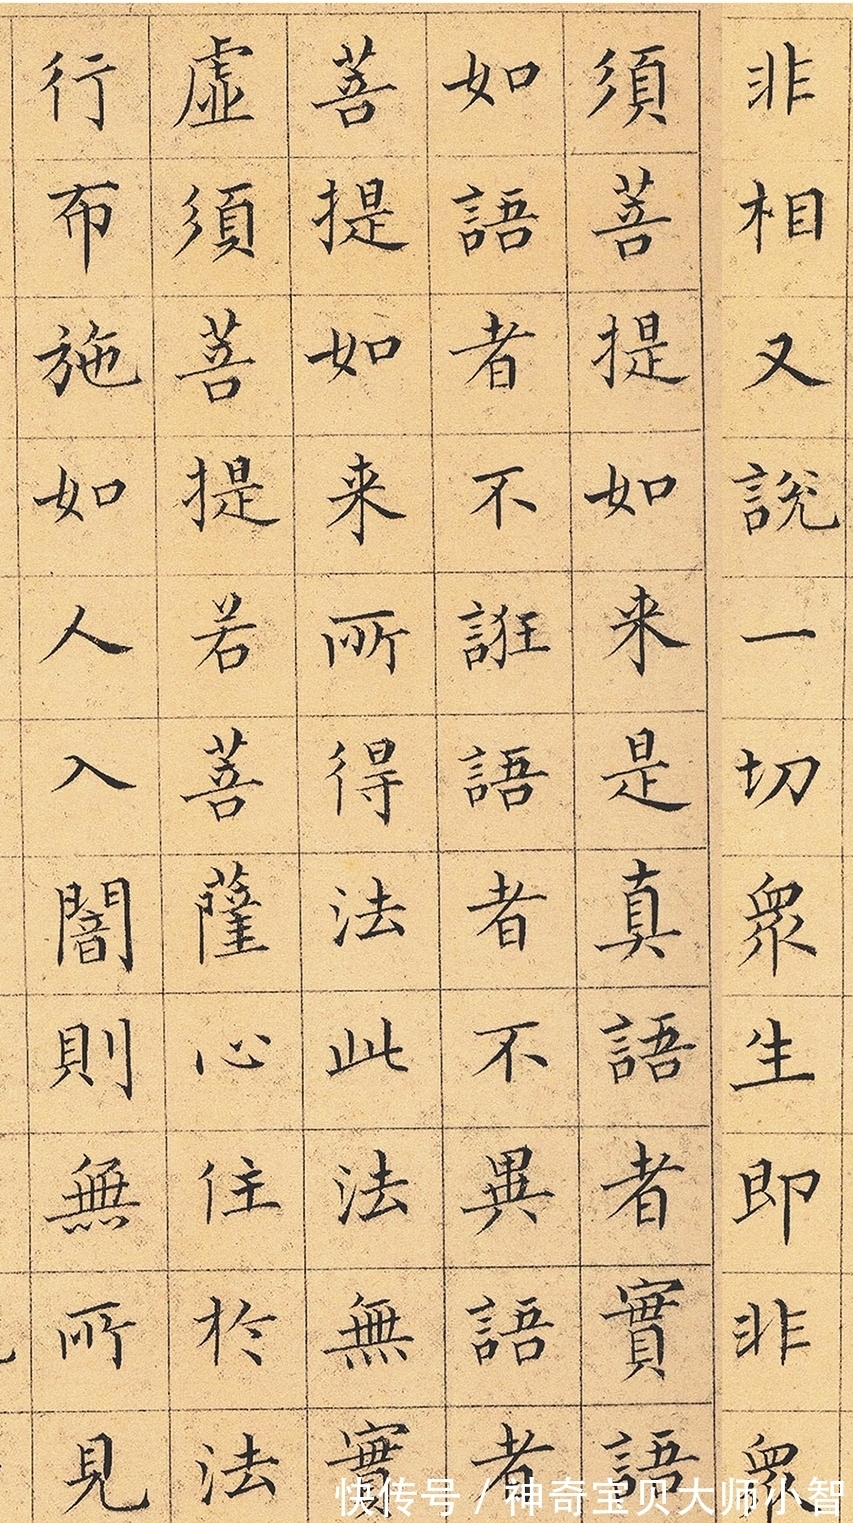 非相又說一切眾生即非眾
須菩提如来是真語者實語
如語者不誑語者不異語者
菩提如来所得法此法無實
虛須菩提若菩薩心住於法
行布施如人入闇則無所見
快传号/神奇宝贝大师小智